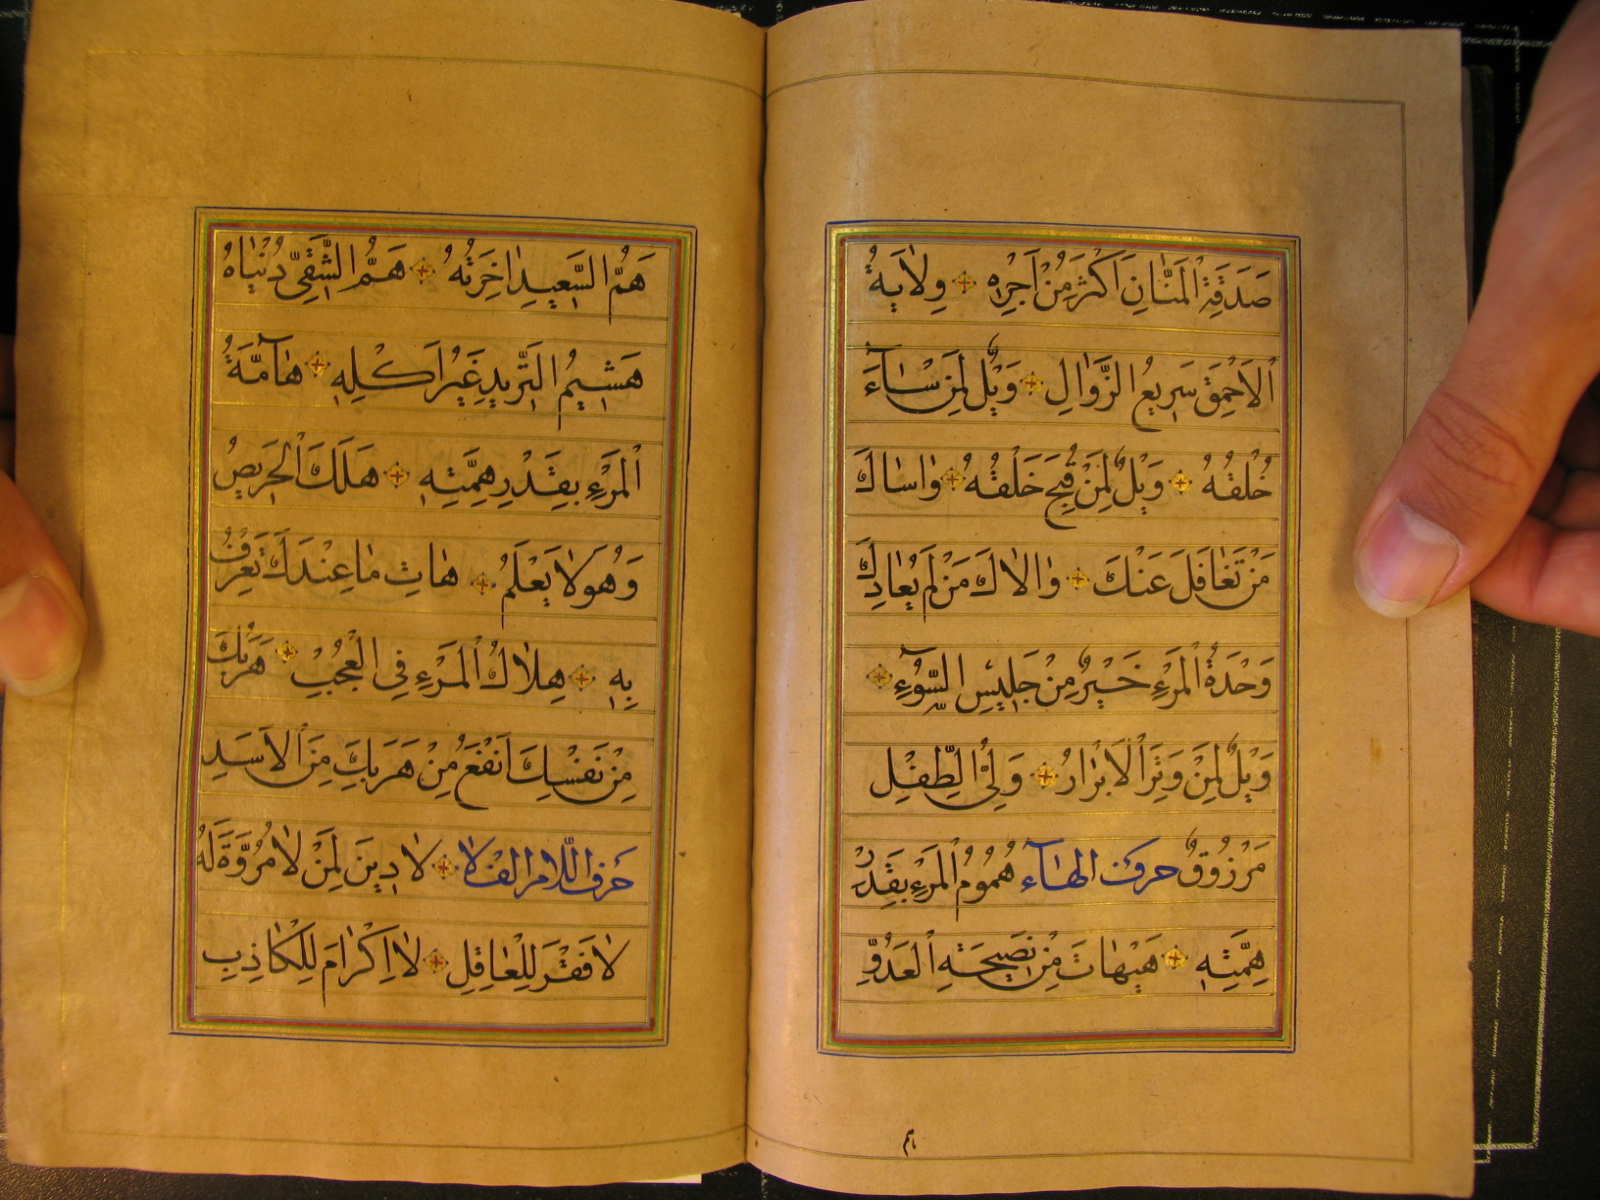 صَدَقَةِ الْمَنَّانِ اَكْثَرُ مِنْ اَجْرِهٖ وِلَايَةُ
الْاَحْمَقِ سَرِيعُ الزَّوَالِ وَيْلٌ لِمَنْ سَاۤءَ
خُلْقُهُ وَيْلٌ لِمَنْ قَبُحَ خَلْقُهُ وَاسَاكَ
مَنْ تَغَافَلَ عَنْكَ وَالَاكَ مَنْ لَمْ يُعَادِكَ
وَحْدَةُ الْمَرْءِ خَيْرٌ مِنْ جَلِيسِ السُّوۤءِ
وَيْلٌ لِمَنْ وَتَرَ الْاَبْرَارُ وَلِيُّ الطِّفْلِ
مَرْزُوقٌ حرف الهآء هُمُومُ الْمَرْءِ بِقَدْرِ
هِمَّتِهٖ هَيْهَاتَ مِنْ نَصِيحَةِ الْعَدُوِّ
هَمُّ السَّعِيدِ اٰخِرَتُهُ هَمُّ الشَّقِىِّ دُنْيَاهُ
هَشِيمُ الثَّرِيدِ غَيْرُ اَكْلِهٖ هَاۤمَّةُ
الْمَرْءِ بِقَدْرِ هِمَّتِهٖ هَلَكَ الْحَرِيصُ
وَهُوَ لَا يَعْلَمُ هَاتِ مَا عِنْدَكَ تُعْرَفُ
بِهٖ هِلَاكُ الْمَرْءِ فِي الْعُجُبِ هَرْبُكَ
مِنْ نَفْسِكَ اَنْفَعُ مِنْ هَرَبِكَ مِنَ الْاَسَدِ
حرف اللام الف لا لَا دِينَ لِمَنْ لَا مُرُوَّةَ لَهُ
لَا فَقْرَ لِلْعَاقِلِ لَا اِكْرَامَ لِلْكَاذِبِ